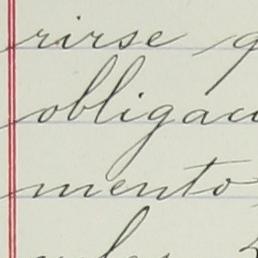 rirse
obligac
mento